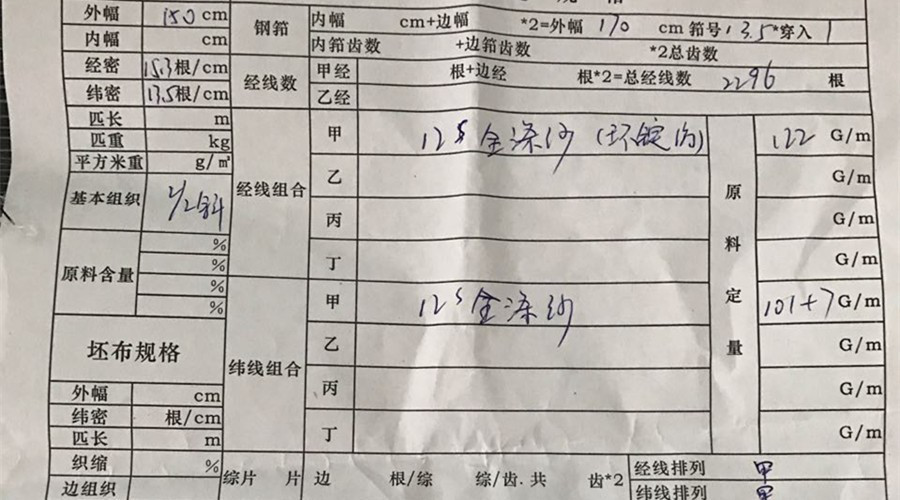 外幅 150 cm
内幅 cm
经密 15.3 根/cm
纬密 13.5 根/cm
匹长 m
匹重 kg
平方米重 g/㎡
基本组织 2/2斜
原料含量 %
%
%
%
坯布规格
外幅 cm
纬密 根/cm
匹长 m
织缩 %
边组织
钢筘 内幅 cm+边幅 *2=外幅 170 cm 筘号 13.5 *穿入 1
内筘齿数 +边筘齿数 *2总齿数
经线数 甲经 根+边经 根*2=总经线数 2296 根
乙经
经线组合 甲 12s全涤纱(环锭纺)
乙
丙
丁
纬线组合 甲 12s全涤纱
乙
丙
丁
原料定量 122 G/m
G/m
G/m
G/m
101+7 G/m
G/m
G/m
G/m
综片 片 边 根/综 综/齿.共 齿*2
经线排列 甲
纬线排列 甲